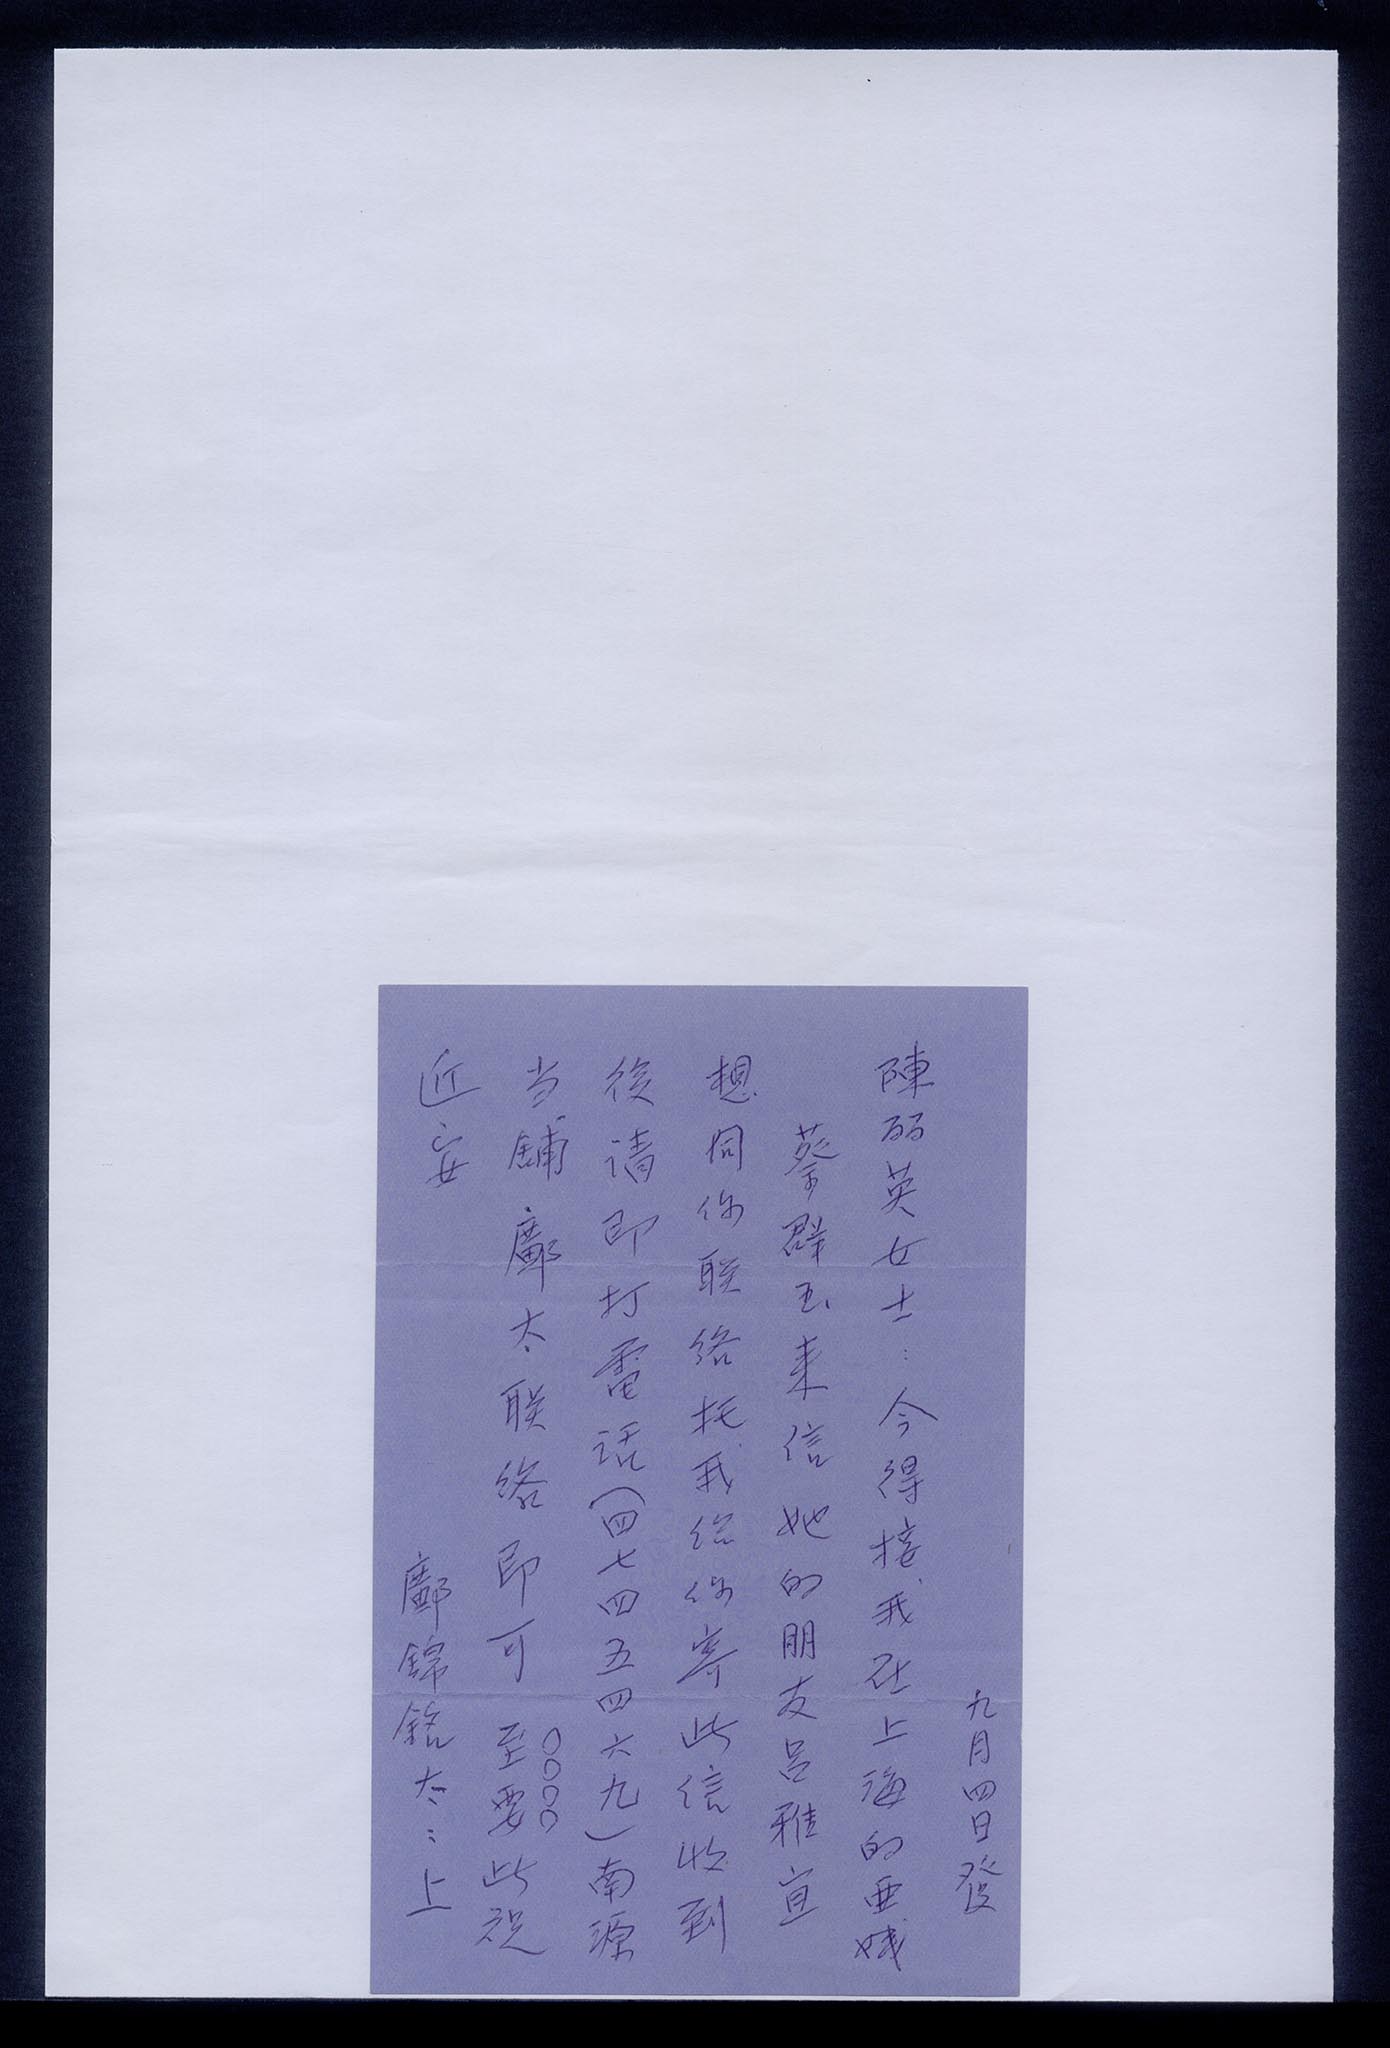 九月四日發
陳丽英女士：今得接我在上海的亜嫂
蔡群玉来信她的朋友呂雅宣
想同你联络托我給你寄此信收到
後请即打電话（四七四五四六九）南源
当舖鄺太联络即可至要。。。。此祝
近安
鄺錦銘太：上